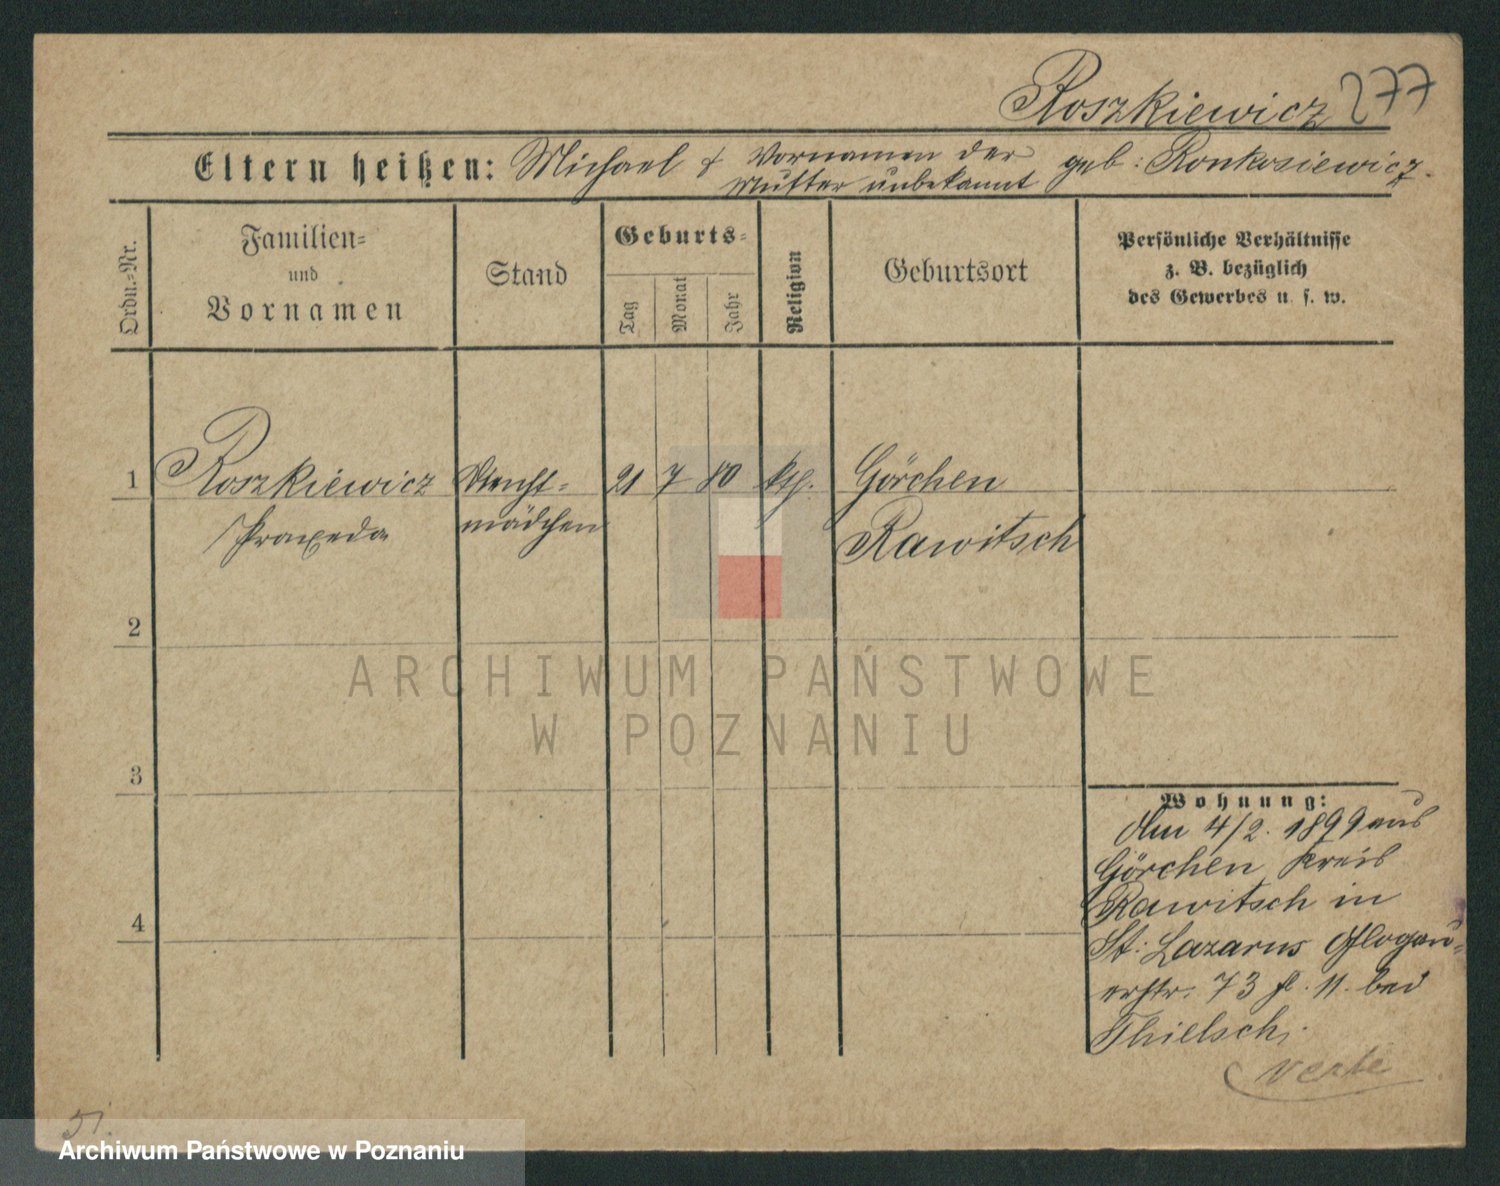 Roszkiewicz 277
Eltern heißen: Michael & Vornamen der geb: Ronkosiewicz.
Mutter unbekannt
Ordn.-Nr.
Familien-
und
Vornamen
Stand
Geburts-
Tag
Monat
Jahr
Religion
Geburtsort
Persönliche Verhältnisse
z. B. bezüglich
des Gewerbes u. s. w.
1 Roszkiewicz Dienst- 21 7 80 kth. Görchen
Praxeda mädchen Rawitsch
2
ARCHIWUM PAŃSTWOWE
W POZNANIU
3
Wohnung:
Am 4/2. 1899 aus
Görchen Kreis
Rawitsch in
4
St: Lazarus Glogau-
erstr. 73 II. bei
Thielsch.
verte
51.
Archiwum Państwowe w Poznaniu